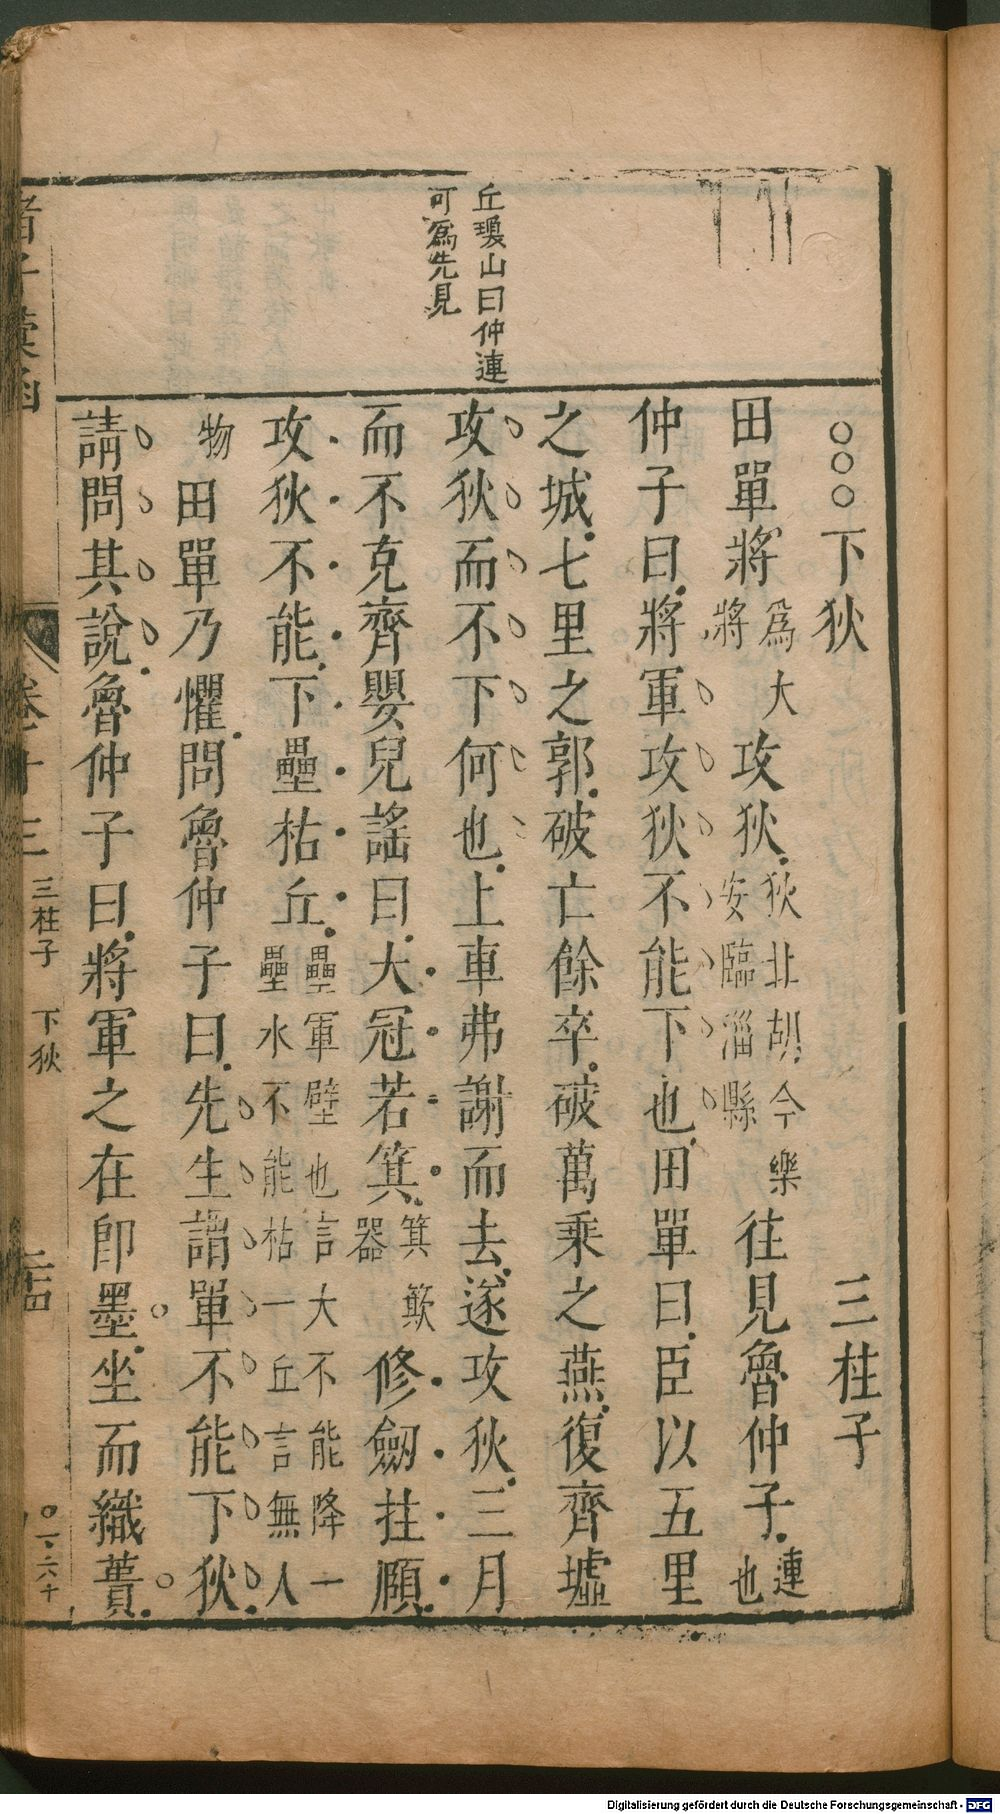 丘瓊山曰仲連
可爲先見
○○○下狄 三柱子
田單將爲大將攻狄狄北胡今樂安臨淄縣往見魯仲子連也
仲子曰將軍攻狄不能下也田單曰臣以五里
之城七里之郭破亡餘卒破萬乘之燕復齊墟
攻狄而不下何也上車弗謝而去遂攻狄三月
而不克齊嬰兒謠曰大冠若箕箕簸器修劒拄頤
攻狄不能下壘枯丘壘軍壁也言大不能降一壘水不能枯一丘言無人
物田單乃懼問魯仲子曰先生謂單不能下狄
請問其說魯仲子曰將軍之在卽墨坐而織蕢
諸子彙函 卷十三 三柱子 下狄 二十四 〇一六十
Digitalisierung gefördert durch die Deutsche Forschungsgemeinschaft - DFG